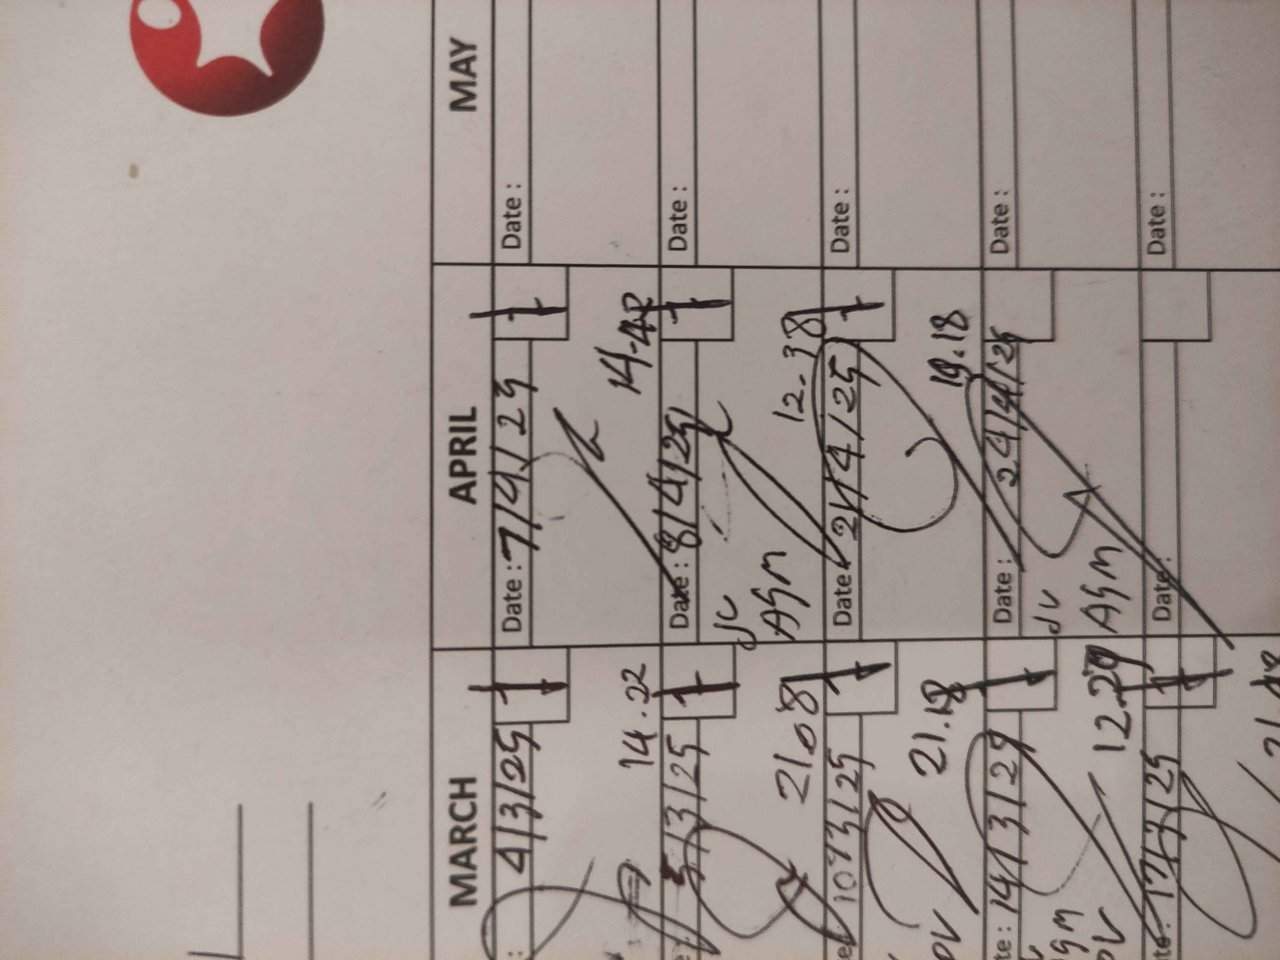 MARCH APRIL MAY
4/3/25 1 Date : 7/4/25 1 Date :
14.22 14.42
5/3/25 1 Date : 8/4/25 1 Date :
AGM
21.08 12.38
10/3/25 1 Date : 21/4/25 1 Date :
21.18 19.18
14/3/25 1 Date : 24/4/25 Date :
AGM
12.29
17/3/25 1 Date : Date :